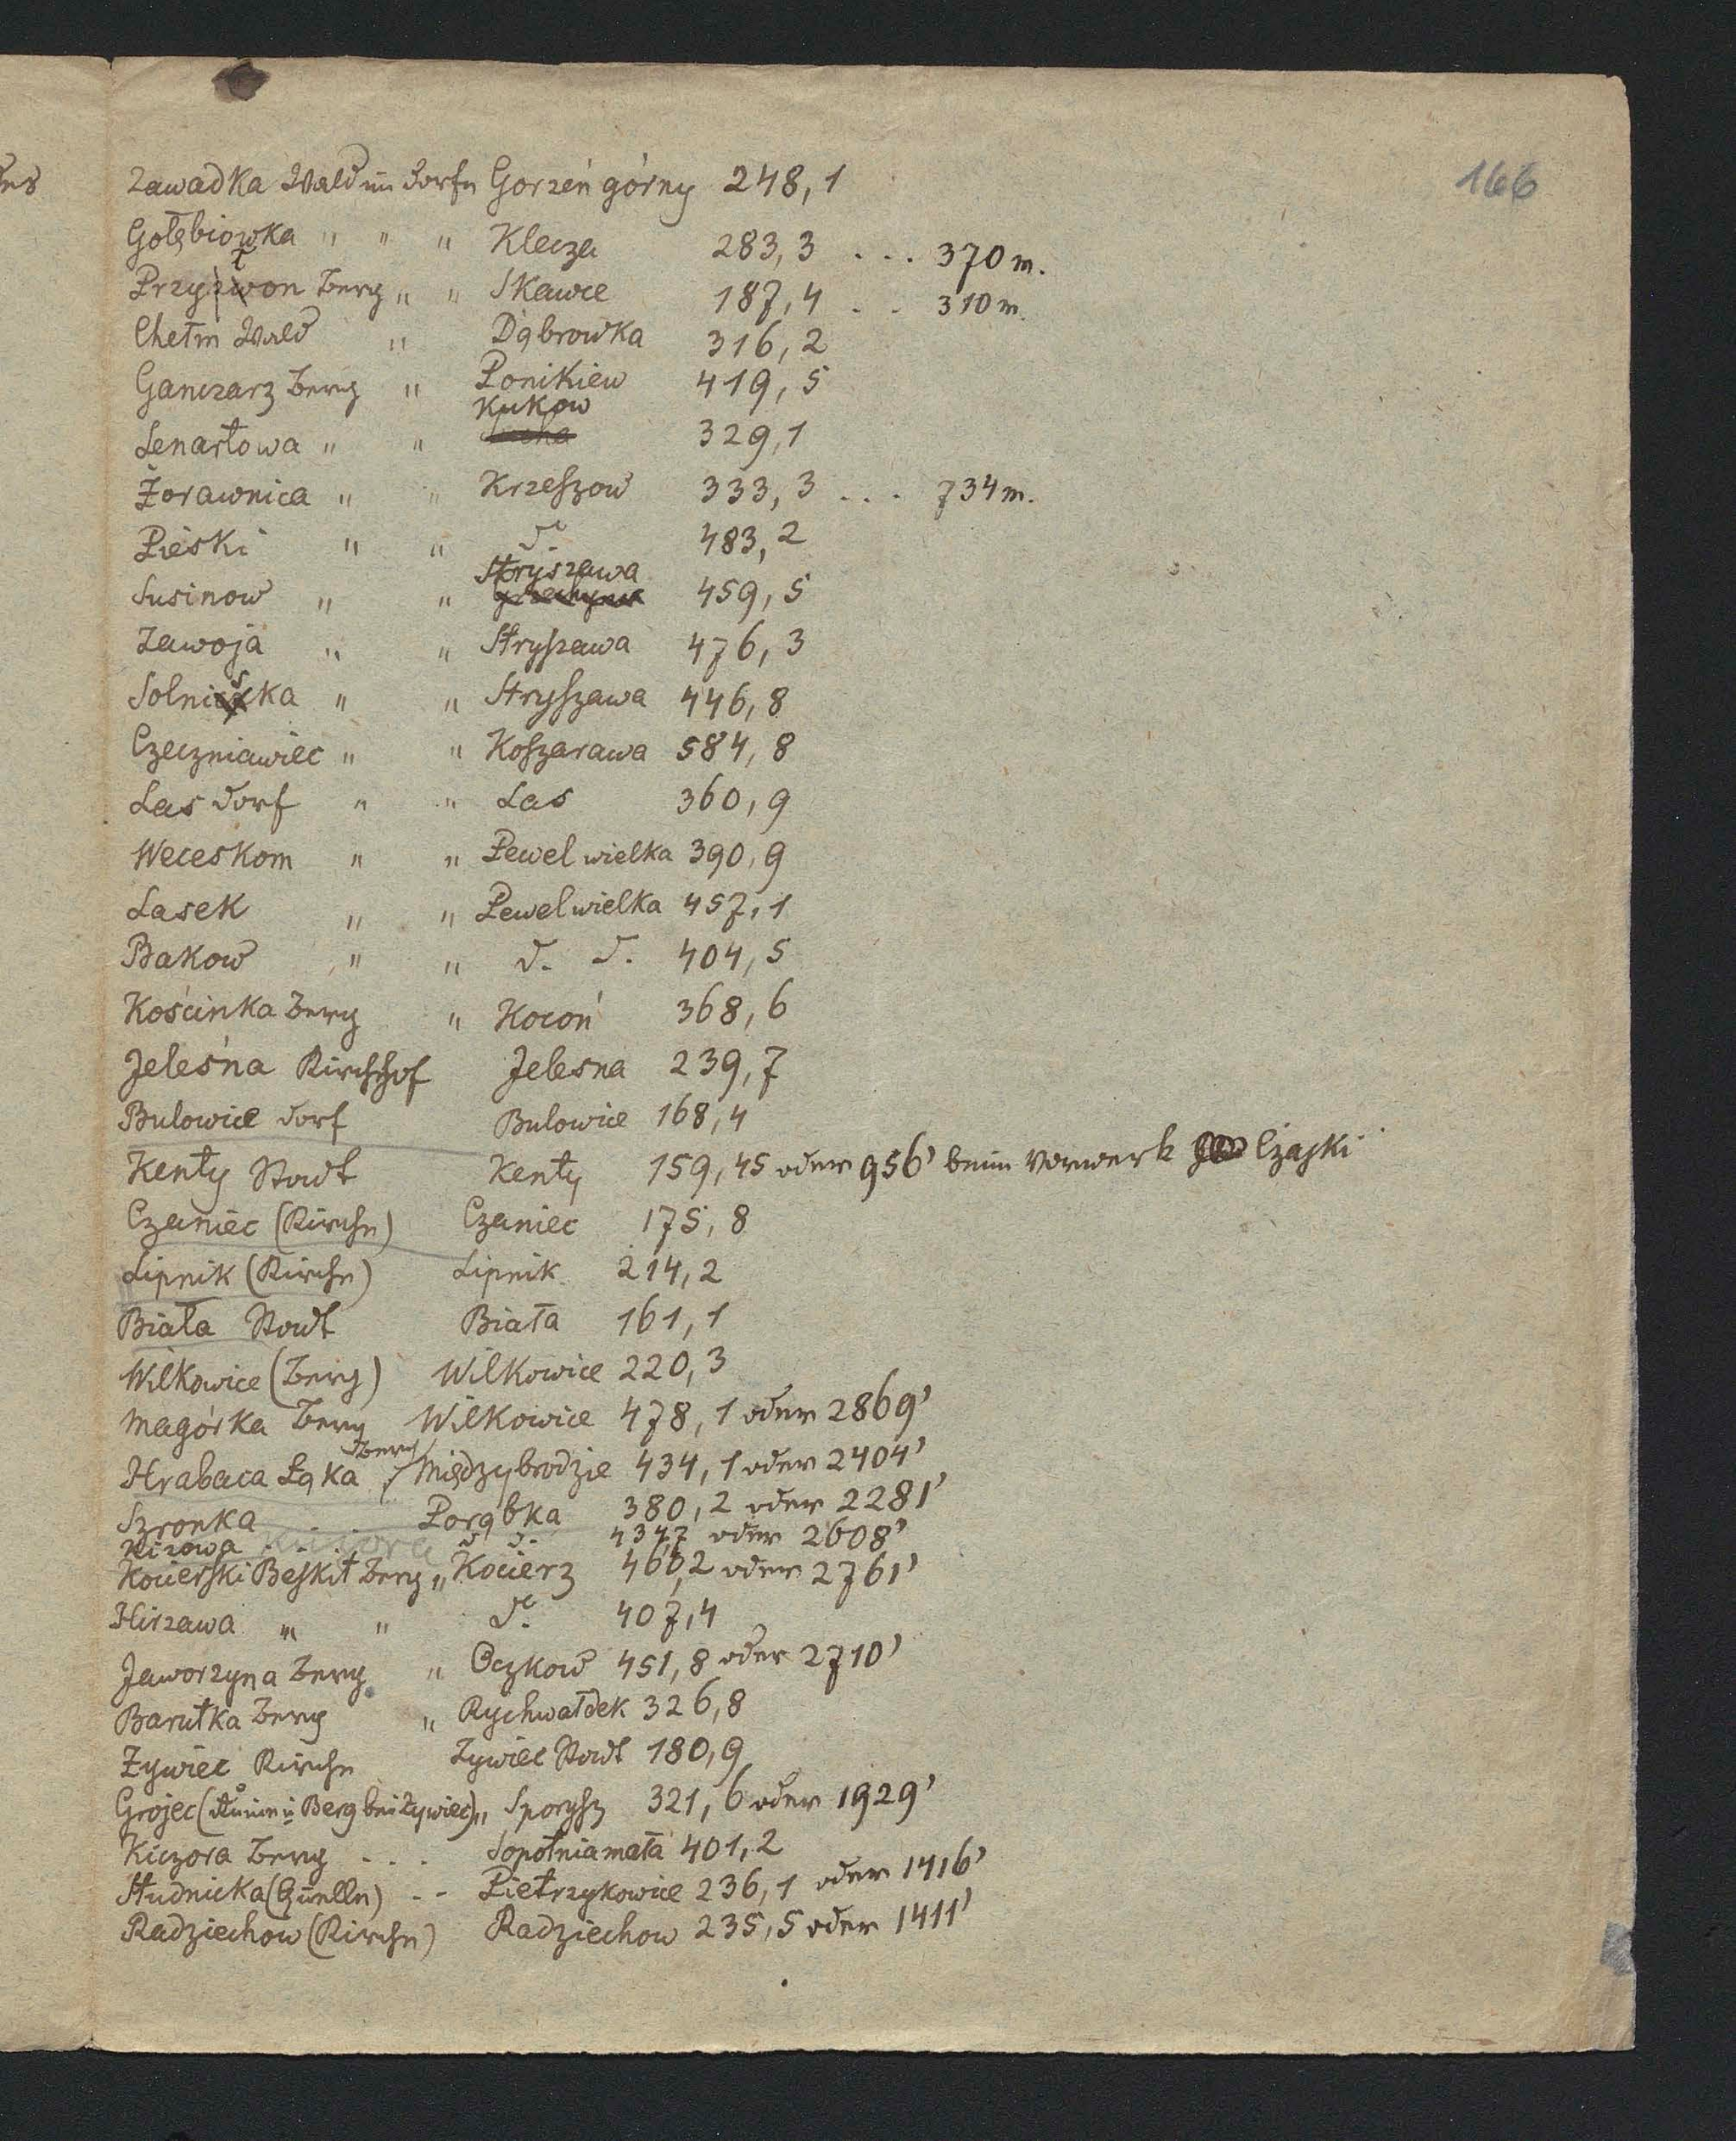 166
Zawadka Wald im Dorfe Gorzeń górny 248,1
Gołębiowka " " " Klecza 283,3 ... 370 m.
Berg " " Skawce 187,4 .. 310 m.
Chełm Wald " Dąbrowka 316,2
Ganczarz Berg " Ponikiew 419,5
Lenartowa " " Kukow 329,1
Żorawnica " " Krzeszow 333,3 ... 734 m.
Pieski " " dº 483,2
Susinow " " Stryszawa 459,5
Zawoja " " Stryszawa 476,3
Solniska " " Stryszawa 446,8
Czeczniawiec " " Koszarawa 584,8
Las Dorf " " Las 360,9
Weceskom " " Pewel wielka 390,9
Lasek " " Pewel wielka 457,1
Bakow " " d. d. 404,5
Kościnka Berg " Kocoń 368,6
Jeleśna Kirchhof Jelesna 239,7
Bulowice Dorf Bulowice 168,4
Kenty Stadt Kenty 159,45 oder 956' beim Vorwerk Czajki
Czaniec (Kirche) Czaniec 175,8
Lipnik (Kirche) Lipnik 214,2
Biała Stadt Biała 161,1
Wilkowice (Berg) Wilkowice 220,3
Magórka Berg Wilkowice 478,1 oder 2869'
Hrabaca Łąka Berg Międzybrodzie 434,1 oder 2404'
Szronka . . . Porąbka 380,2 oder 2281'
Kizowa Kiczora d d. 434,7 oder 2608'
Kocierski Beskit Berg " Kocierz 460,2 oder 2761'
Hirzawa " " dº. 407,4
Jaworzyna Berg " Oczkow 451,8 oder 2710'
Barutka Berg " Rychwałdek 326,8
Żywiec Kirche Żywiec Stadt 180,9
Grojec (Ruine u Berg bei Żywiec) " Sporysz 321,6 oder 1929'
Kiczora Berg ... Sopotnia mała 401,2
Studnicka (Quelle) .. Pietrzykowice 236,1 oder 1416'
Radziechow (Kirche) Radziechow 235,5 oder 1411'